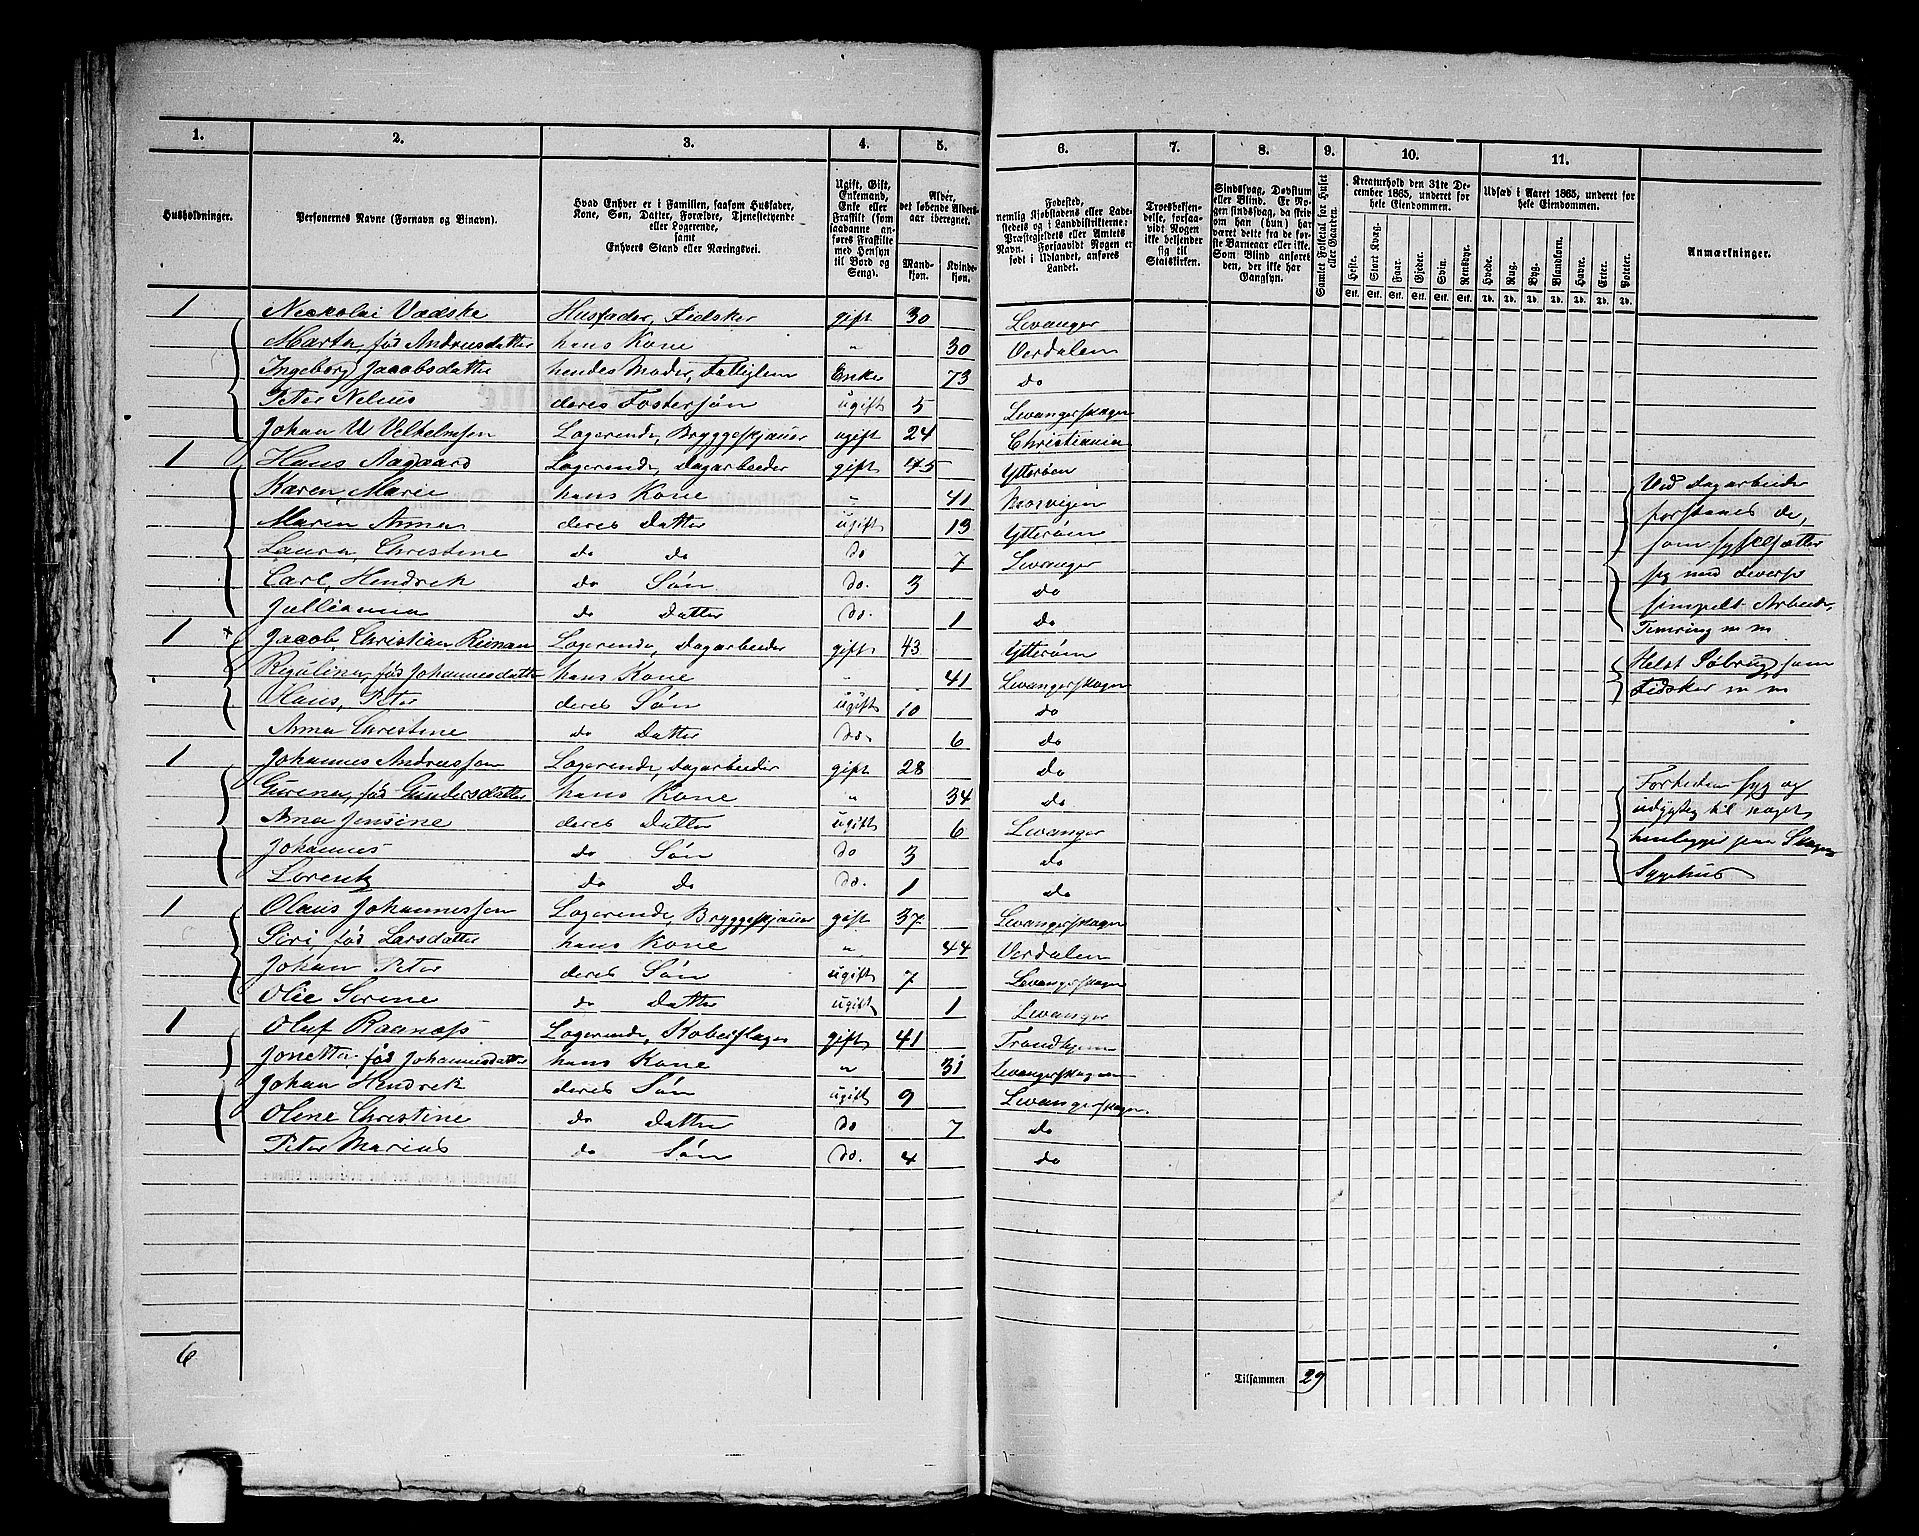 1. 2. 3. 4. 5. 6. 7. 8. 9. 10. 11.
Husholdninger. Personernes Navne (Fornavn og Binavn). Hvad Enhver er i Familien, saasom Husfader, Kone, Søn, Datter, Forældre, Tjenestetyende eller Logerende, samt Enhvers Stand eller Næringsvei. Ugift, Gift, Enkemand, Enke eller Fraskilt (som saadanne anføres Fraskilte med Hensyn til Bord og Seng). Alder, det løbende Aldersaar iberegnet. Mandkjøn. Kvindekjøn.
Fødested, nemlig Kjøbstadens eller Ladestedets og i Landdistrikterne: Præstegjeldets eller Amtets Navn. Forsaavidt Nogen er født i Udlandet, anføres Landet. Troesbekjendelse, forsaavidt Nogen ikke bekjender sig til Statskirken. Sindssvag, Døvstum eller Blind. Er Nogen sindssvag, da skrives om han (hun) har været dette fra de første Barneaar eller ikke. Som Blind anføres den, der ikke har Gangsyn. Samlet Folketal for Huset eller Gaarden. Kreaturhold den 31te December 1865, underet for hele Eiendommen. Udsæd i Aaret 1865, underet for hele Eiendommen. Anmærkninger.
Heste. Stort Kvæg. Faar. Gjeder. Svin. Rensdyr. Hvede. Rug. Byg. Blandkorn. Havre. Erter. Poteter.
Stk. Stk. Stk. Stk. Stk. Stk. Td. Td. Td. Td. Td. Td. Td.
1 Nickolai Vadske Husfader, Fidsker gift 30 Levanger
Marta, fød Andreasdatter hans Kone " 30 Verdalen
Ingeborg Jacobsdatter hendes Moder, Fattiglem Enke 73 do
Peter Nelius deres Fostersøn ugift 5 Levangerskagen
Johan W Velhelmsen Logerende, Bryggeskjauer ugift 24 Christiania
1 Hans Aagaard Logerende, Dagarbeider gift 45 Ytterøen
Karen Marie hans Kone " 41 Mosvigen Ved dagarbeider
Maren Anna deres Datter ugift 13 Ytterøen forstaaes de,
Laura, Christine do do do 7 Levanger som sysselsætter
Carl, Hendrek do Søn do. 3 do sig med diverse
Jullianna do Datter do. 1 do simpelt Arbeide,
1 Jacob, Christian Reiman Logerende, Dagarbeider gift 43 Ytterøen Tømring m m
Regulina, fød Johannesdatter hans Kone " 41 Levangerskagen Helst Søbrug som
Olaus, Peter deres Søn ugift 10 do Fidsker m m
Anna Christine do Datter do. 6 do
1 Johannes Andreassen Logerende, Dagarbeider gift 28 do
Gurena, fød Gundersdatter hans Kone " 34 do Fortiden syg og
Anna Jensine deres Datter ugift 6 Levanger udygtig til noget
Johannes do Søn do 3 do henligger paa Skagens
Lorentz do do do. 1 do Sygehus
1 Olaus Johannessen Logerende, Bryggeskjauer gift 37 Levangerskagen
Siri, fød Larsdatter hans Kone " 44 Verdalen
Johan Peter deres Søn ugift 7 Levangerskagen
Olie Serene do Datter ugift 1 Levanger
1 Oluf Raanæss Logerende, Koberslager gift 41 Trondhjem
Jonetta fød Johannesdatter hans Kone " 31 Levangerskagen
Johan Hendrek deres Søn ugift 9 Levangerskagen.
Olene Christine do Datter do 7 do
Peter Marius do Søn do. 4 do
6 Tilsammen 29